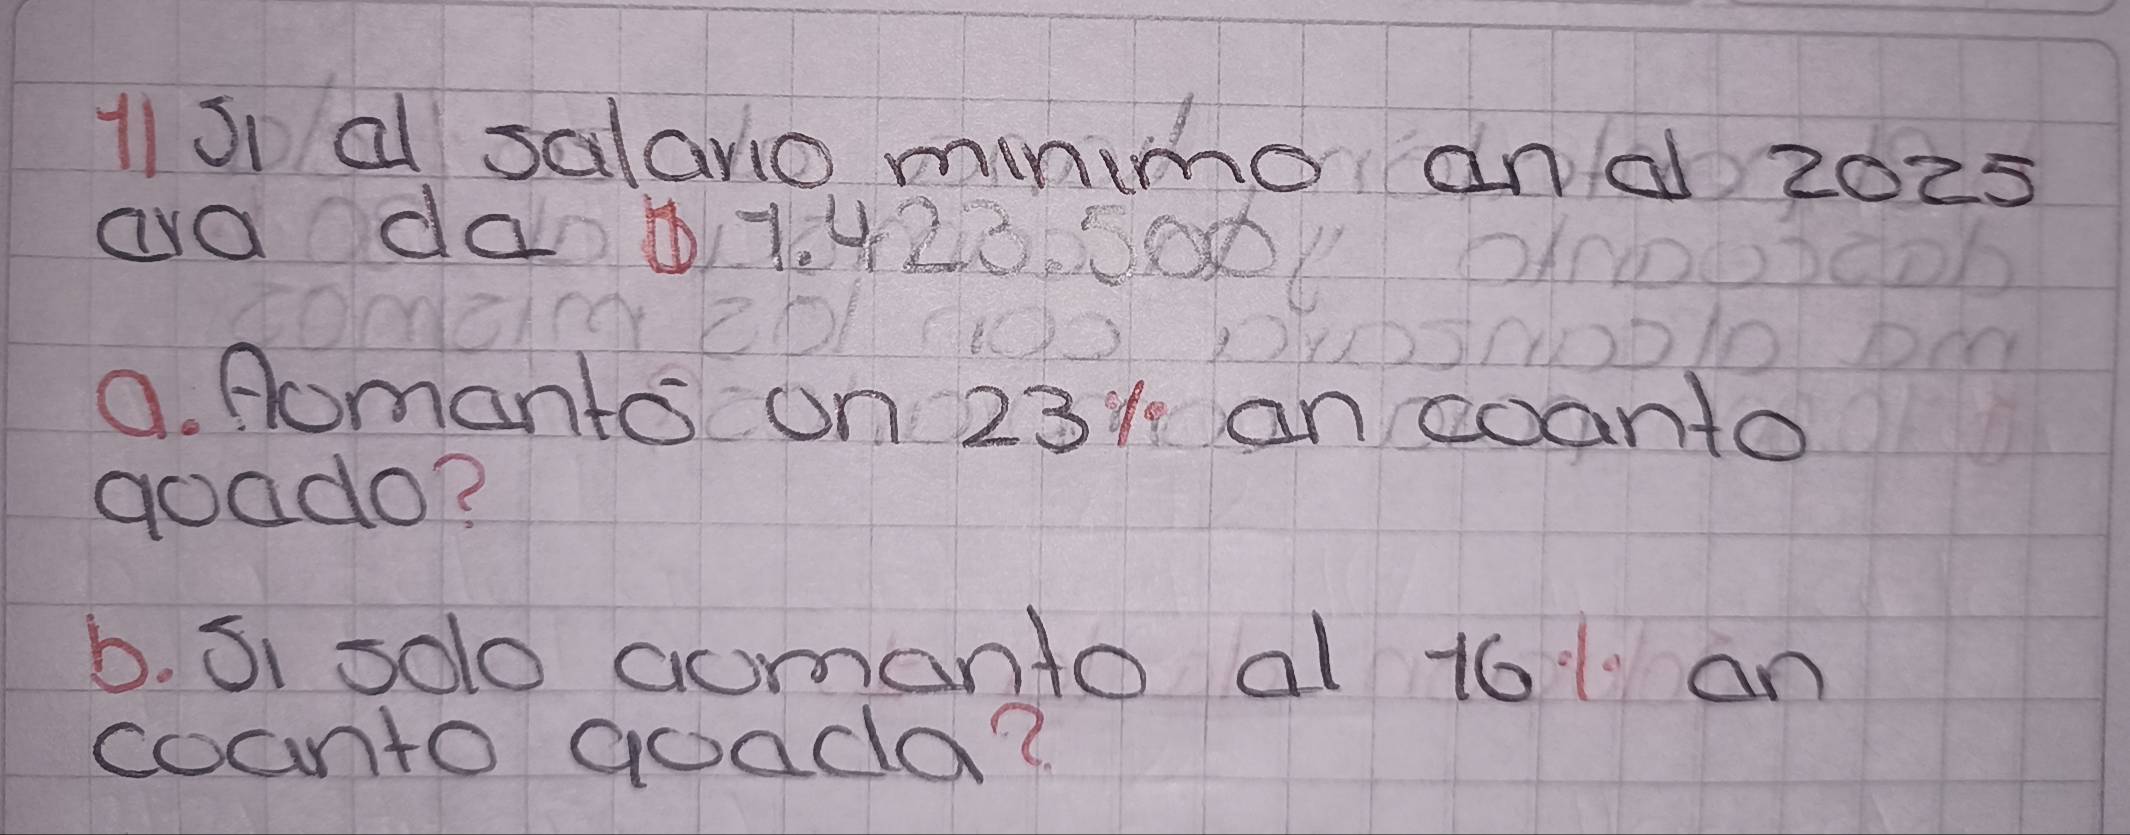 11 Si al salario minimo an al 2025
ara da $ 1.423.500
a. Aomantó on 23% an coanto
qoado?
b. Si solo aomanto al 16% an
coanto qoada?